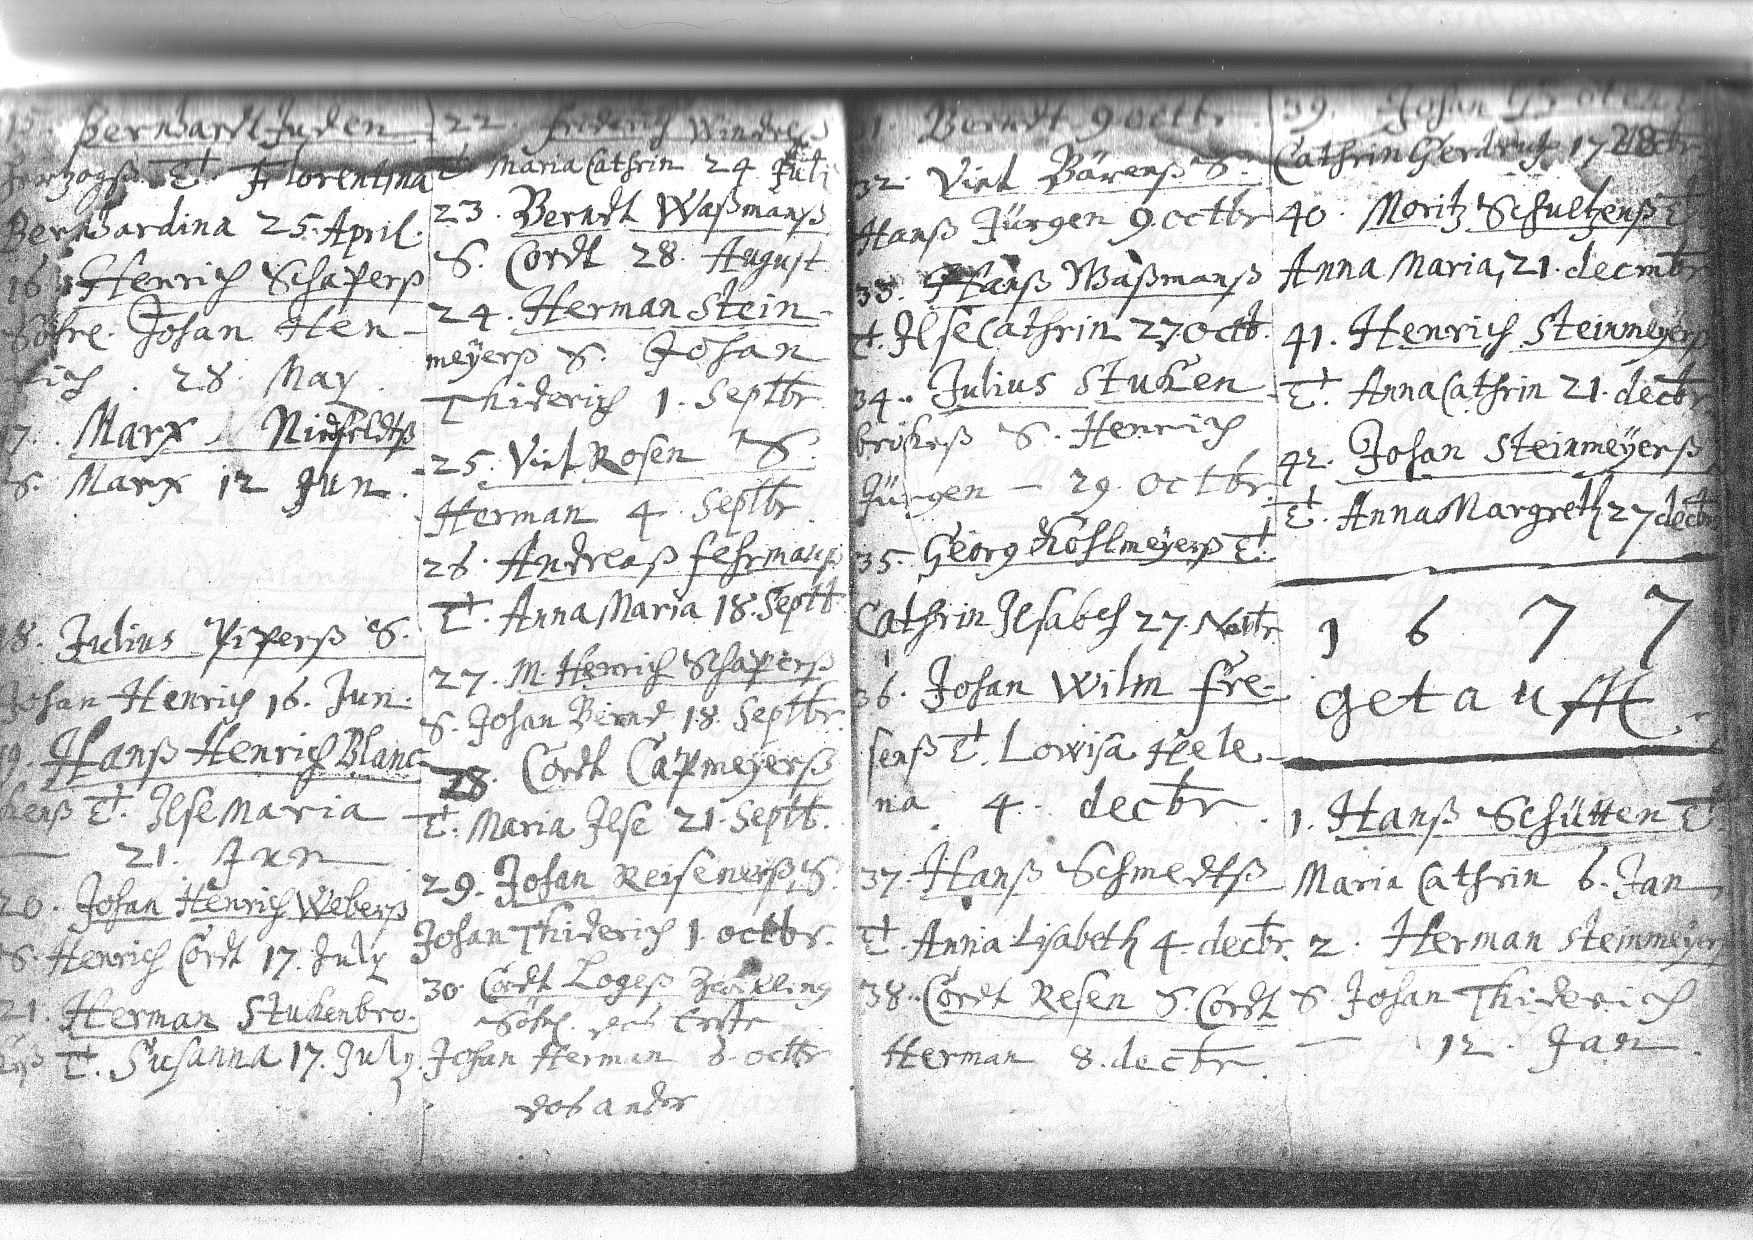 15. Bernhardt Juden
Herzogß T. Florentina
Bernhardina 25. April.
16 Henrich Schaperß
Söhre. Johan Hen-
rich. 28. May.
17. Marx Niedfeldtß
S. Marx 12 Jun.
18. Julius Piperß S.
Johan Henrich 16. Jun.
19. Hanß Henrich Blanc-
kenß T. Ilse Maria
21. Jun
20. Johan Henrich Weberß
S. Henrich Cordt 17. July
21. Herman Stukenbro-
keß T. Susanna 17. July.
22 friderich
T. Maria Cathrin 24. Juli
23. Berndt Waßmanß
S. Cordt 28. August
24. Herman Stein-
meyerß S. Johan
Thiderich 1. Septbr.
25. Viet Rosen S.
Herman 4. Septbr.
26. Andreaß fehrmanß
T. Anna Maria 18. Septb.
27. M. Henrich Schaperß
S. Johan Bernd 18. Septbr.
28. Cordt Capmeyerß
T. Maria Ilse 21. Septb.
29. Johan Reisenerß S.
Johan Thiderich 1. octbr.
30. Cordt Logeß Zwilling
Söhn. das Erste
Johan Herman 8. octbr
das ander
31. Berndt 9 octb.
32. Viet Bärenß S.
Hanß Jürgen 9. octbr
33. Hanß Waßmanß
T. Ilse Cathrin 27 octb.
34. Julius Stuken
brökeß S. Henrich
Jürgen — 29. octbr.
35. Georg Kohlmeyerß T.
Cathrin Ilsabeh 27. Novbr.
36. Johan Wilm fre-
senß T. Lowisa Hele-
na. 4. decbr.
37. Hanß Schmedtß
T. Anna Lisabeth 4. decbr.
38. Cordt Resen S. Cordt
Herman 8. decbr.
39. Johan Groten T
Cathrin Gerdruht 17 decbr.
40. Moritz Schultzenß T
Anna Maria, 21. decmbr
41. Henrich Steinmeyerß
T. Anna Cathrin 21. decbr
42. Johan Steinmeyerß
T. Anna Margreth 27 decbr
1677
getaufft.
1. Hanß Schütten T.
Maria Cathrin 6. Jan
2. Herman Steinmeyerß
S. Johan Thiderich
— 12. Jan.